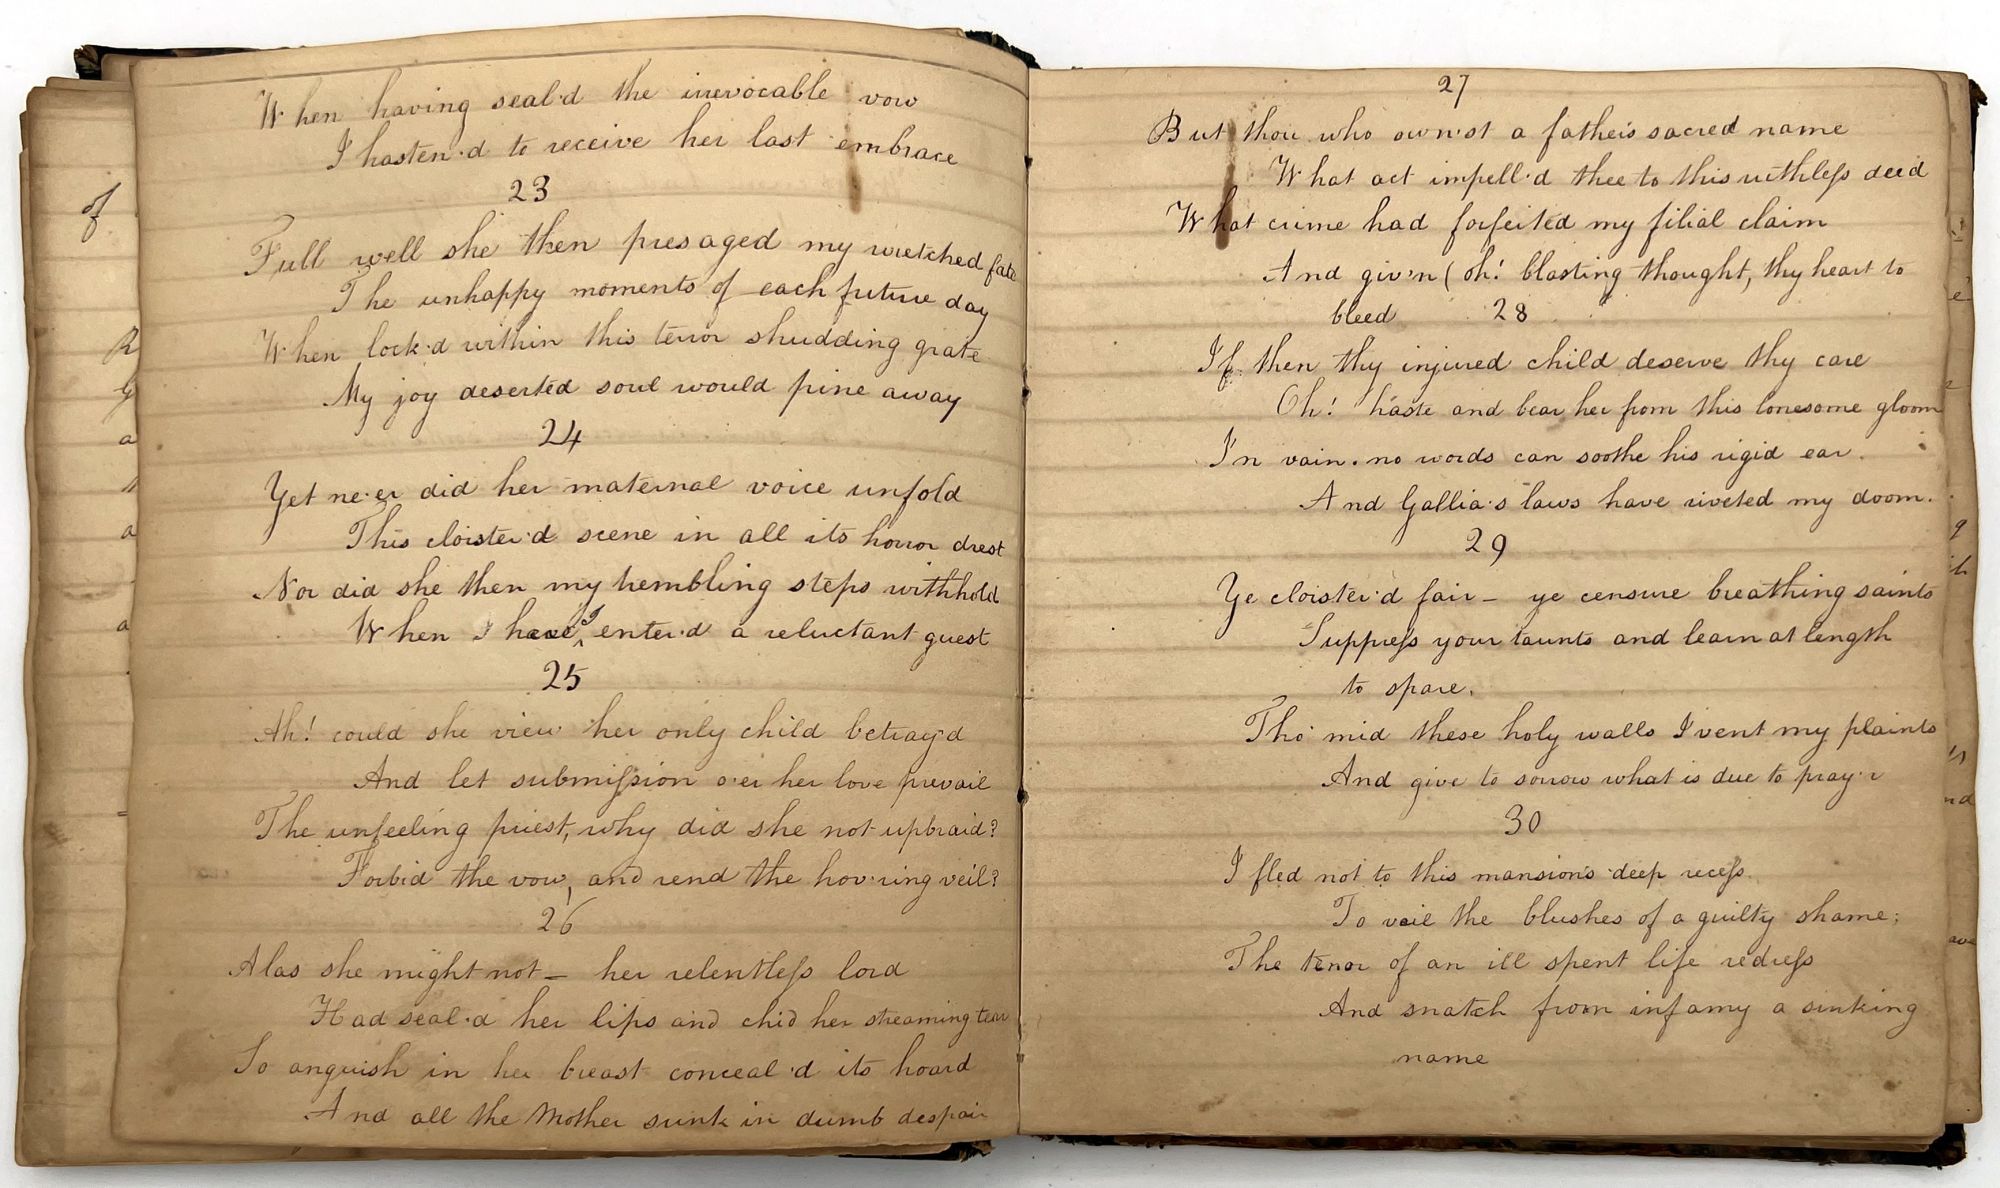 of
R
G
a
a
a
When having seal'd the irrevocable vow
I hasten'd to receive her last embrace
23
Full well she then presaged my wretched fate
The unhappy moments of each future day
When lock'd within this terror shudding grate
My joy deserted soul would pine away
24
Yet ne'er did her maternal voice unfold
This cloister'd scene in all its horror drest
Nor did she then my trembling steps withhold
When I here enter'd a reluctant guest
25
Ah! could she view her only child betray'd
And let submiſsion o'er her love prevail
The unfeeling priest, why did she not upbraid?
Forbid the vow, and rend the hov'ring veil?
26
Alas she might not – her relentleſs lord
Had seal'd her lips and chid her streaming tear
So anguish in her breast conceal'd its hoard
And all the Mother sunk in dumb despair
27
But thou who own'st a father's sacred name
What act impell'd thee to this ruthleſs deed
What crime had forfeited my filial claim
And giv'n (oh! blasting thought, thy heart to
bleed 28
If then thy injured child deserve thy care
Oh! haste and bear her from this lonesome gloom
In vain. no words can soothe his rigid ear.
And Gallia's laws have riveted my doom.
29
Ye cloister'd fair – ye censure breathing saints
Suppreſs your taunts and learn at length
to spare.
Tho' mid these holy walls I vent my plaints
And give to sorrow what is due to pray'r
30
I fled not to this mansion's deep receſs
To veil the blushes of a guilty shame;
The tenor of an ill spent life redreſs
And snatch from infamy a sinking
name